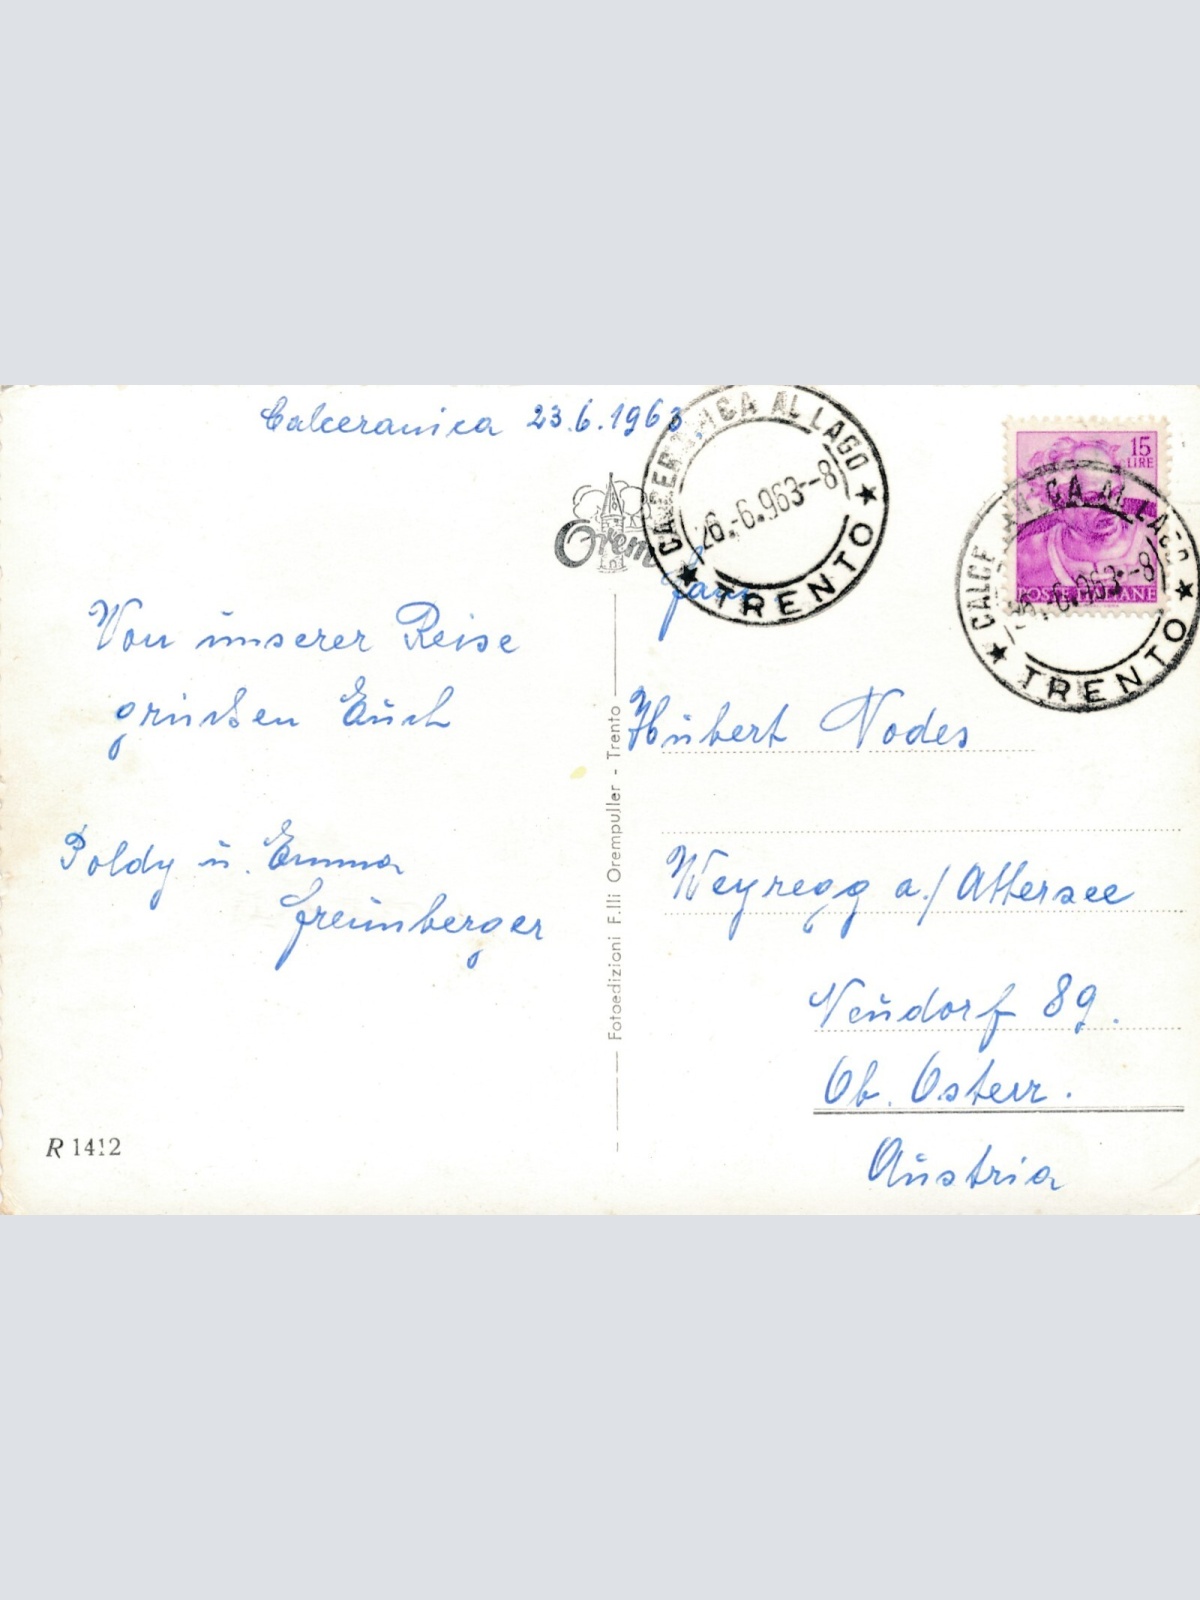 Calceranica 23.6.1963
Von unserer Reise
grüssen Euch
Poldy u. Emma
Freunberger
R 1412
Orem
Fotoedizioni F.lli Orempuller - Trento
CALCERANICA AL LAGO
26.-6.963.-8
TRENTO
15
LIRE
POSTE ITALIANE
CALCERANICA AL LAGO
26.-6.963.-8
TRENTO
Fam.
Hubert Nodes
Weyregg a./Attersee
Neudorf 89.
Ob. Österr.
Austria